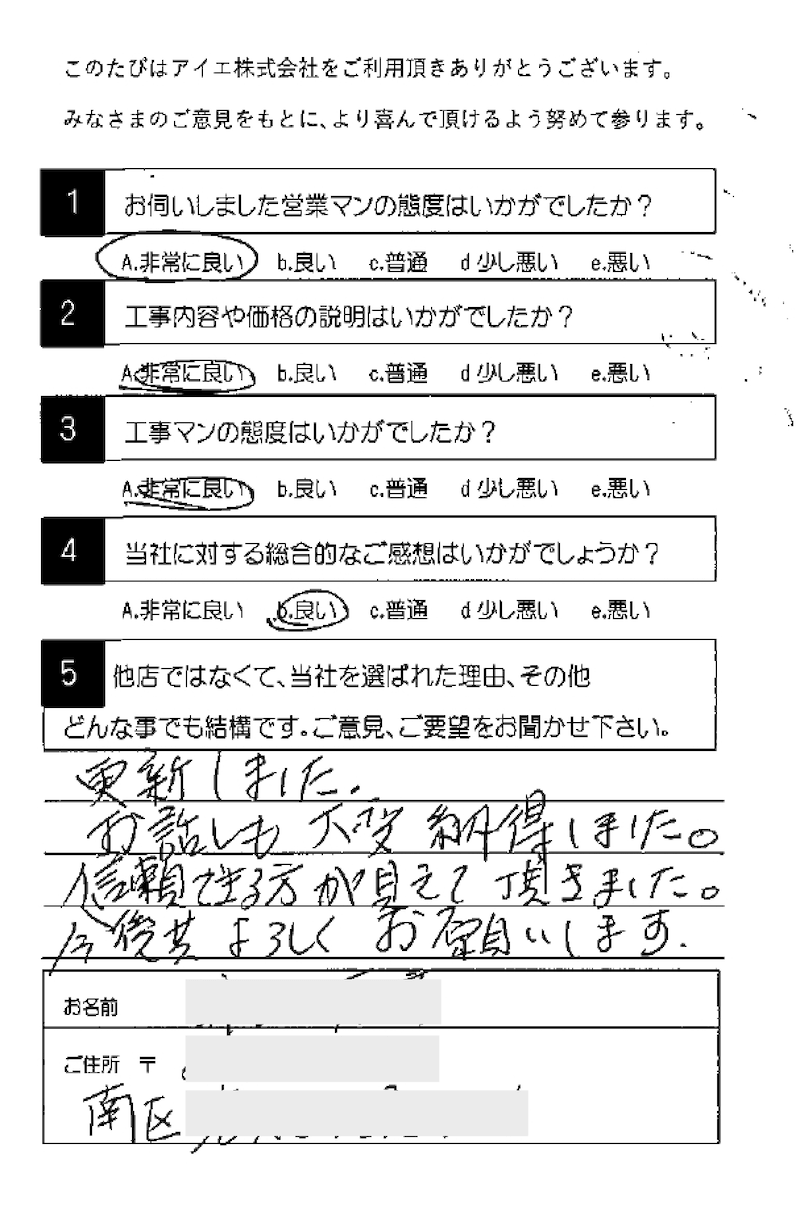 このたびはアイエ株式会社をご利用頂きありがとうございます。
みなさまのご意見をもとに、より喜んで頂けるよう努めて参ります。
1 お伺いしました営業マンの態度はいかがでしたか？
A.非常に良い b.良い c.普通 d少し悪い e.悪い
2 工事内容や価格の説明はいかがでしたか？
A.非常に良い b.良い c.普通 d少し悪い e.悪い
3 工事マンの態度はいかがでしたか？
A.非常に良い b.良い c.普通 d少し悪い e.悪い
4 当社に対する総合的なご感想はいかがでしょうか？
A.非常に良い b.良い c.普通 d少し悪い e.悪い
5 他店ではなくて、当社を選ばれた理由、その他
どんな事でも結構です。ご意見、ご要望をお聞かせ下さい。
更新しました.
お話しも 大変 納得しました。
信頼できる方が見えて頂きました。
今後共よろしく お願いします.
お名前
ご住所 〒
南区